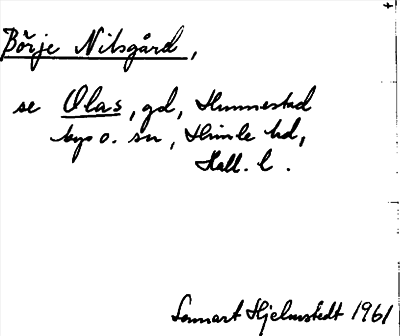 Börje Nilsgård,
se Olas, gd, Hunnestad
by o. sn, Himle hd,
Hall. l.
Lennart Hjelmstedt 1961